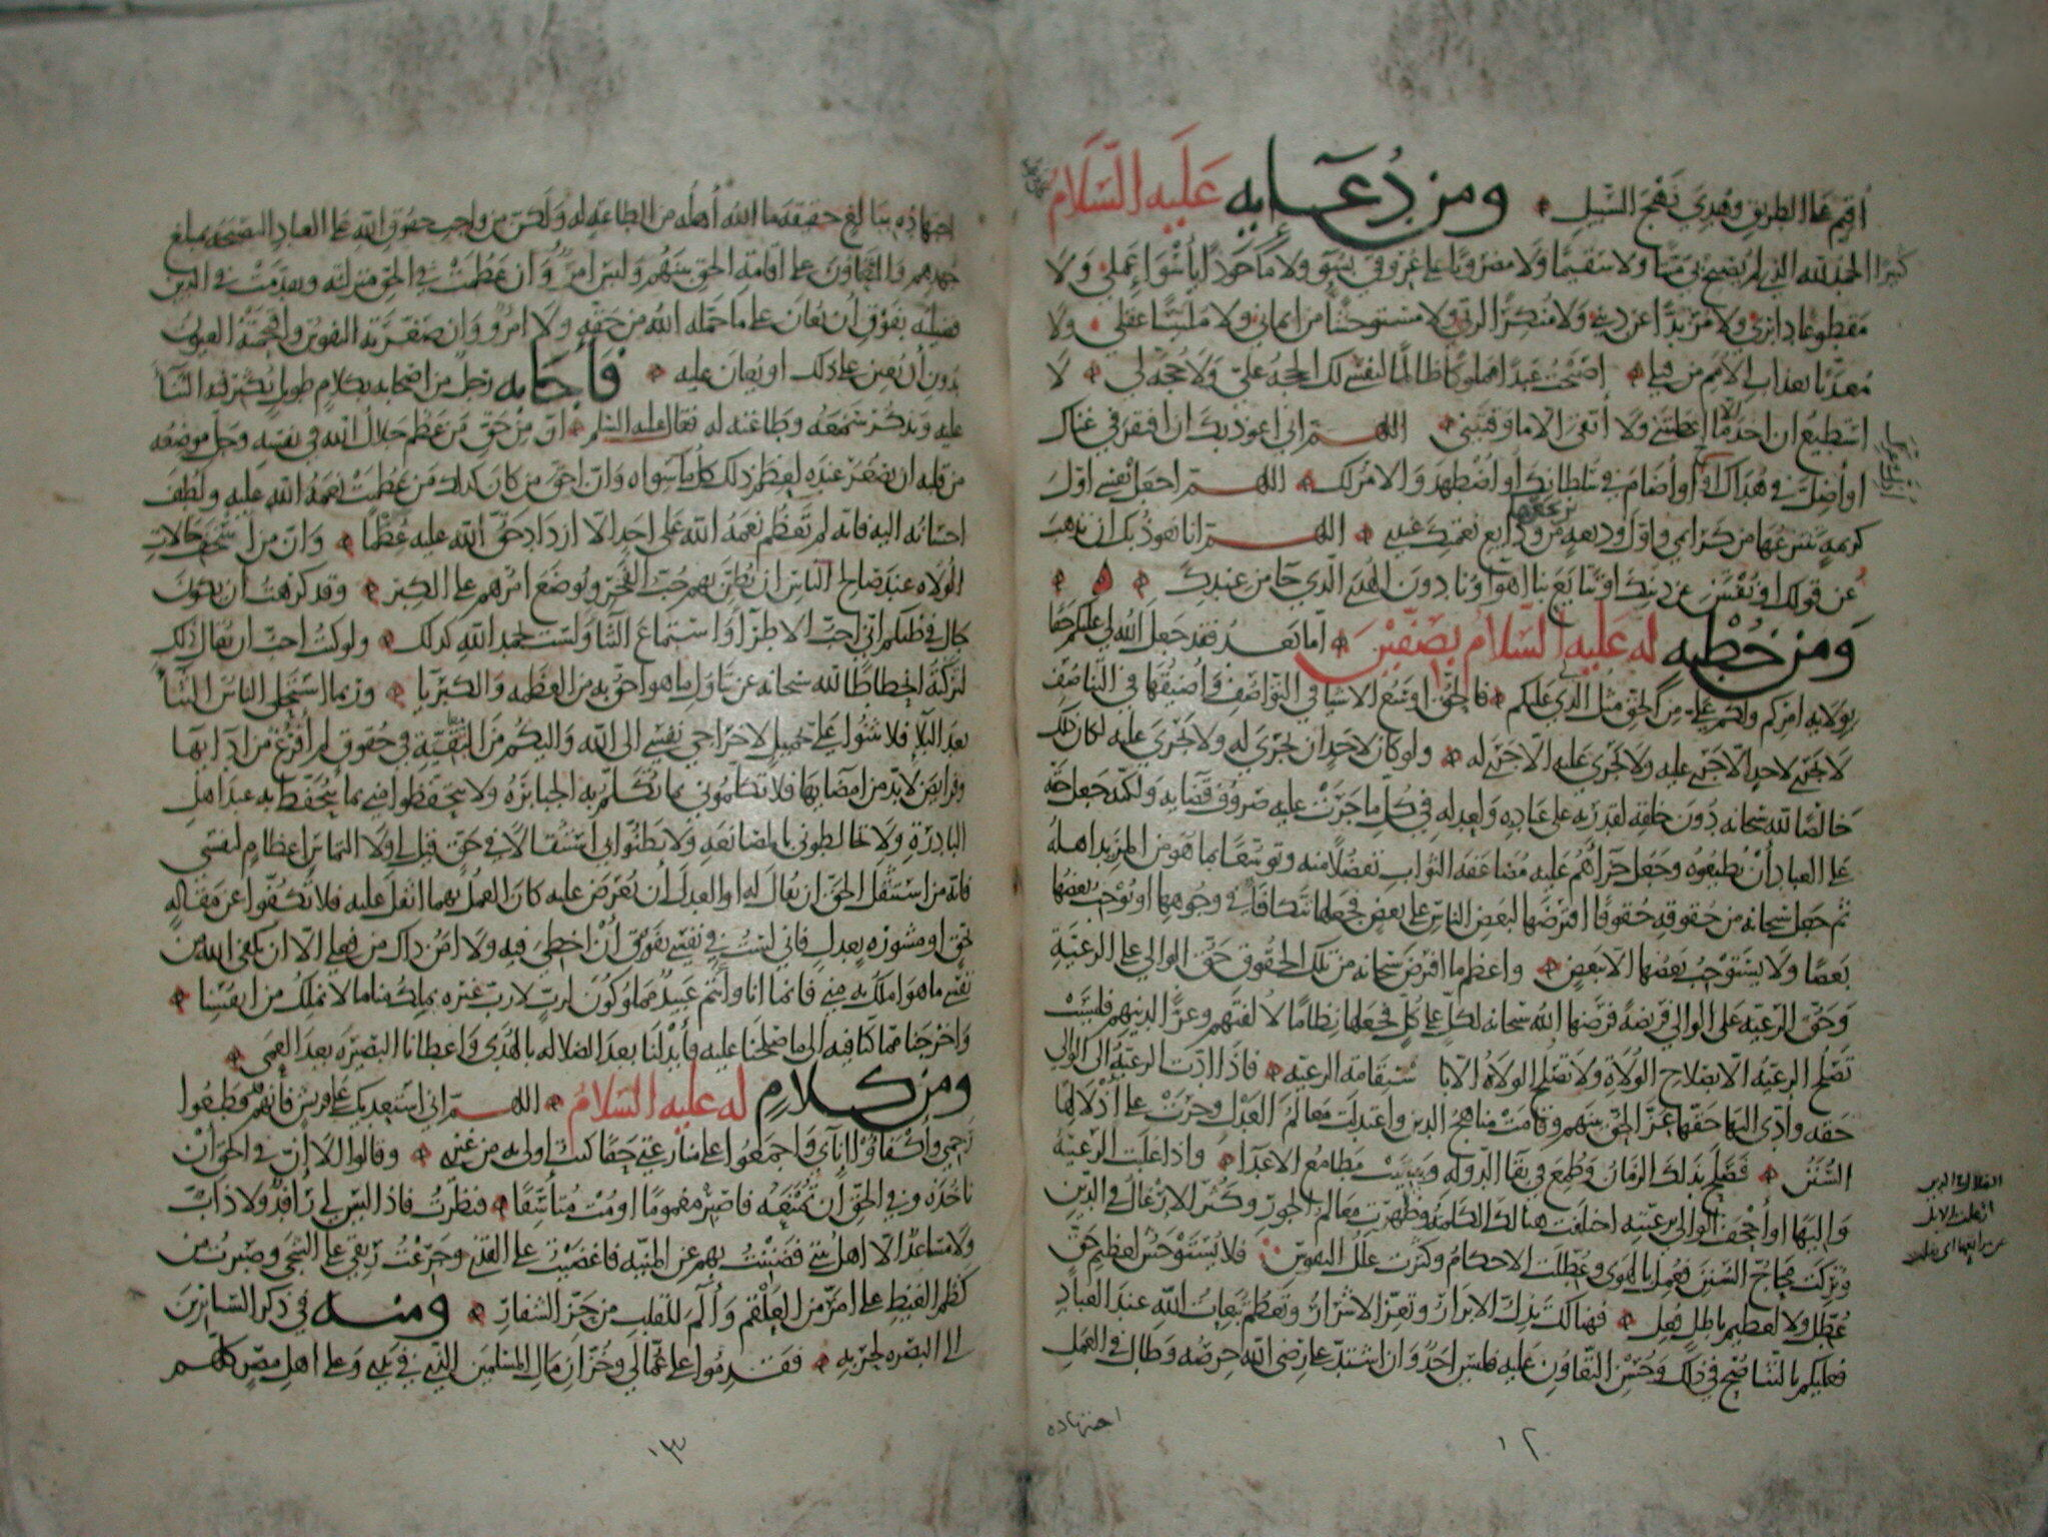 أقيم على الطريق وهدي نهج السبيل ومن دعائه عليه السلام
كثيرا الحمد لله الذي لم يصبح بي ميتا ولا سقيما ولا مضروبا على عروقي بسوء ولا مأخوذا بأسوء عملي ولا
مقطوعا دابري ولا مرتدا عن ديني ولا منكرا لربي ولا مستوحشا من ايماني ولا ملتبسا عقلي ولا
معذبا بعذاب الامم من قبلي اصبحت عبدا مملوكا ظالما لنفسي لك الحجة علي ولا حجة لي لا
استطيع ان اخذ الا ما اعطيتني ولا أتقي الا ما وقيتني اللهم اني اعوذ بك ان افتقر في غناك
او أضل في هداك أو أضام في سلطانك أو اضطهد والامر لك اللهم اجعل نفسي اول
كريمة تنتزعها من كرائمي واول وديعة ترتجعها من ودايع نعمك عندي اللهم انا نعوذ بك ان نذهب
عن قولك او نفتتن عن دينك او تتايع بنا اهواؤنا دون الهدى الذي جا من عندك
ومن خطبه له عليه السلام بصفين اما بعد فقد جعل الله لي عليكم حقا
بولاية امركم ولكم علي من الحق مثل الذي لي عليكم فالحق اوسع الاشيا في التواصف وأضيقها في التناصف
لا يجري لاحد الا جرى عليه ولا يجري عليه الا جرى له ولو كان لاحد ان يجري له ولا يجري عليه لكان ذلك
خالصا لله سبحانه دون خلقه لقدرته على عباده ولعدله في كل ما جرت عليه صروف قضايه ولكنه جعل حقه
على العباد أن يطيعوه وجعل جزاهم عليه مضاعفة الثواب تفضلا منه وتوسعا بما هو من المزيد اهله
ثم جعل سبحانه من حقوقه حقوقا افترضها لبعض الناس على بعض فجعلها تتكافا في وجوهها ويوجب بعضها
بعضا ولا يستوجب بعضها الا ببعض واعظم ما افترض سبحانه من تلك الحقوق حق الوالي على الرعية
وحق الرعية على الوالي فريضة فرضها الله سبحانه لكل على كل فجعلها نظاما لالفتهم وعزا لدينهم فليست
تصلح الرعية الا بصلاح الولاة ولا تصلح الولاة الا باستقامة الرعية فاذا ادت الرعية الى الوالي
حقه وأدى اليها حقها عز الحق بينهم وقامت مناهج الدين واعتدلت معالم العدل وجرت على أذلالها
السنن فصلح بذلك الزمان وطمع في بقا الدولة ويئست مطامع الاعدا واذا غلبت الرعية
واليها او أجحف الوالي برعيته اختلفت هنالك الكلمة وظهرت معالم الجور وكثر الادغال في الدين
وتركت محاج السنن فعمل بالهوى وعطلت الاحكام وكثرت علل النفوس فلا يستوحش لعظيم حق
عطل ولا لعظيم باطل فعل فهنالك تذل الابرار وتعز الاشرار وتعظم تبعات الله عند العباد
فعليكم بالتناصح في ذلك وحسن التعاون عليه فليس احد وان اشتد على رضى الله حرصه وطال في العمل
اجتهاده
١٢
اجتهاده ببالغ حقيقة ما الله أهله من الطاعة له ولكن من واجب حقوق الله على العباد النصيحة بمبلغ
جهدهم والتعاون على اقامة الحق بينهم وليس امرؤ وان عظمت في الحق منزلته وتقدمت في الدين
فضيلته بفوق أن يعان على ما حمله الله من حقه ولا امرؤ وان صغرته النفوس واقتحمته العيون
بدون أن يعين على ذلك او يعان عليه فأجابه رجل من اصحابه بكلام طويل يكثر فيه الثنا
عليه ويذكر سمعه وطاعته له فقال عليه السلم ان من حق من عظم جلال الله في نفسه وجل موضعه
من قلبه ان يصغر عنده لعظم ذلك كل ما سواه وان احق من كان كذلك من عظمت نعمة الله عليه ولطف
احسانه اليه فانه لم تعظم نعمة الله على احد الا ازداد حق الله عليه عظما وان من اسخف حالات
الولاة عند صالح الناس ان يظن بهم حب الفخر ويوضع امرهم على الكبر وقد كرهت ان يكون
جال في ظنكم اني احب الاطرا واستماع الثنا ولست بحمد الله كذلك ولو كنت احب ان يقال ذلك
لتركته انحطاطا لله سبحانه عن تناول ما هو احق به من العظمة والكبريا وربما استحلى الناس الثنا
بعد البلا فلا تثنوا علي بجميل ثنا لاخراجي نفسي الى الله واليكم من التقية في حقوق لم أفرغ من ادايها
وفرايض لا بد من امضايها فلا تكلموني بما تكلم به الجبابرة ولا تتحفظوا مني بما يتحفظ به عند اهل
البادرة ولا تخالطوني بالمصانعة ولا تظنوا بي استثقالا في حق قيل لي ولا التماس اعظام لنفسي
فانه من استثقل الحق ان يقال له او العدل أن يعرض عليه كان العمل بهما اثقل عليه فلا تكفوا عن مقالة
بحق او مشورة بعدل فاني لست في نفسي بفوق أن اخطئ ولا امن ذاك من فعلي الا ان يكفي الله من
نفسي ما هو املك به مني فانما انا وأنتم عبيد مملوكون لرب لا رب غيره يملك منا ما لا نملك من انفسنا
واخرجنا مما كنا فيه الى ما صلحنا عليه فأبدلنا بعد الضلالة بالهدى واعطانا البصيرة بعد العمى
ومن كلام له عليه السلام اللهم اني استعديك على قريش فانهم قد قطعوا
رحمي واكفاؤا إنائي واجمعوا على منازعتي حقا كنت اولى به من غيري وقالوا ألا ان في الحق أن
تاخذه وفي الحق أن تمنعه فاصبر مغموما او مت متأسفا فنظرت فاذا ليس لي رافد ولا ذاب
ولا مساعد الا اهل بيتي فضننت بهم عن المنية فاغضيت على القذى وجرعت ريقي على الشجى وصبرت من
كظم الغيظ على امر من العلقم وآلم للقلب من حز الشفار ومنه في ذكر السائرين
الى البصرة لحربه فقدموا على عمالي وخزان مال المسلمين الذي في يدي وعلى اهل مصر كلهم
١٣